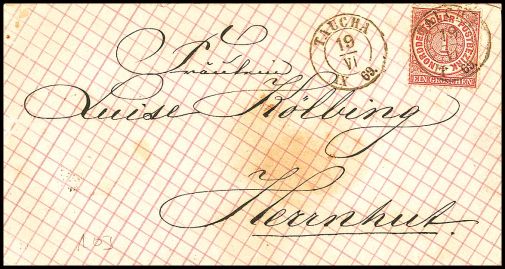 TAUCHA
19
VI
IV
69.
NORDDEUTSCHER POSTBEZIRK
1
EIN GROSCHEN
Fräulein
Luise Kölbing
Herrnhut.